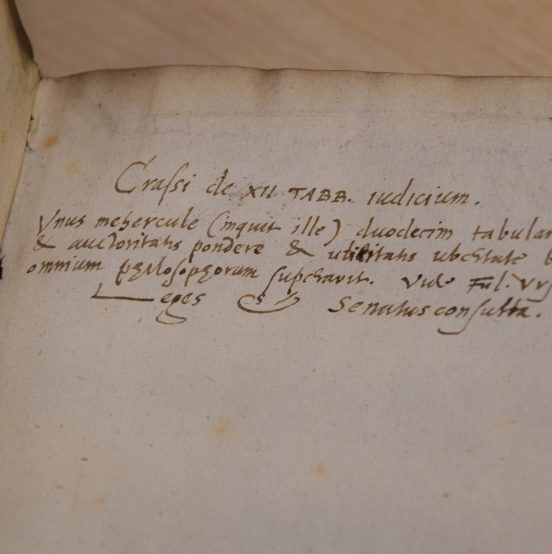 Crassi de XII TABB. iudicium.
Vnus mehercule (inquit ille) duodecim tabular
& auctoritatis pondere & utilitatis ubertate
omnium philosophorum superavit. Vide Ful. Urs
Leges & Senatus consulta.